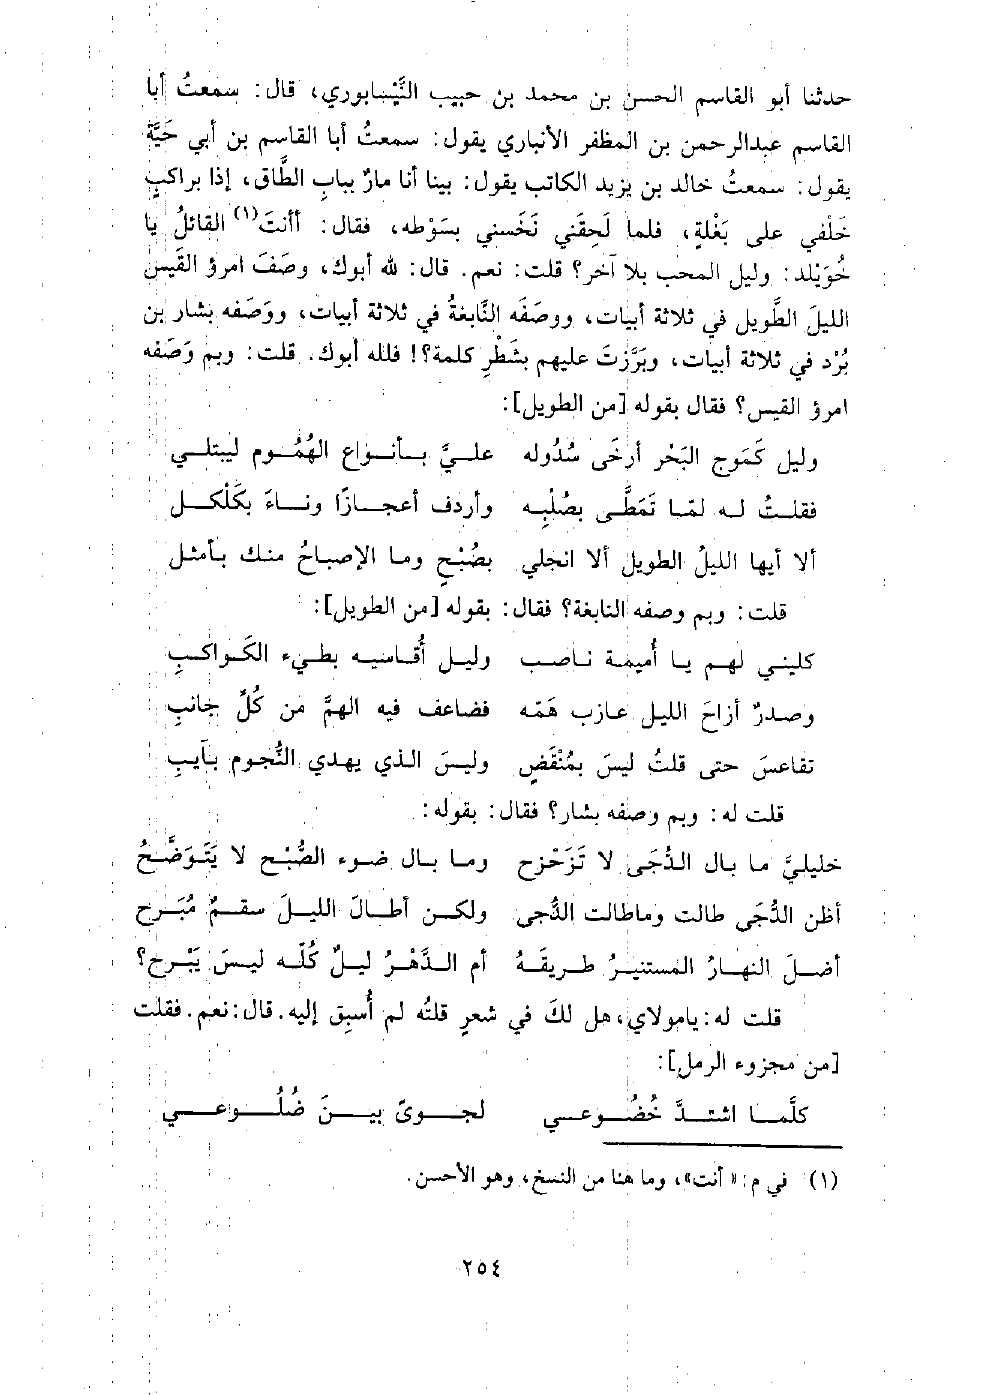 حدثنا أبو القاسم الحسن بن محمد بن حبيب النَّيْسابوري، قال: سمعتُ أبا
القاسم عبدالرحمن بن المظفر الأنباري يقول: سمعتُ أبا القاسم بن أبي حَيَّة
يقول: سمعتُ خالد بن يزيد الكاتب يقول: بينا أنا مارٌ ببابِ الطَّاق، إذا براكبٍ
خَلْفي على بَغْلةٍ، فلما لَحِقَني نَخَسني بسَوْطه، فقال: أأنتَ(١) القائلُ يا
خُوَيْلد: وليل المحب بلا آخر؟ قلت: نعم. قال: لله أبوك، وصَفَ امرؤ القَيس
الليلَ الطَّويل في ثلاثة أبيات، ووصَفَه النَّابغةُ في ثلاثة أبيات، ووَصَفه بشار بن
بُرْد في ثلاثة أبيات، وبَرَّزتَ عليهم بشَطْرِ كلمة؟! فلله أبوك. قلت: وبم وَصَفه
امرؤ القيس؟ فقال بقوله [من الطويل]:
وليل كَمَوج البَحْر أرخَى سُدُوله عليَّ بأنواع الهُمُوم ليبتلي
فقلتُ له لمّا تَمَطَّى بصُلْبِه وأردف أعجازًا وناءَ بكَلْكل
ألا أيها الليلُ الطويل ألا انجلي بصُبْحٍ وما الإصباحُ منك بأمثل
قلت: وبم وصفه النابغة؟ فقال: بقوله [من الطويل]:
كليني لهم يا أُميمة ناصب وليل أُقاسيه بطيء الكَواكبِ
وصدرٌ أزاحَ الليل عازب هَمّه فضاعف فيه الهمَّ من كُلِّ جانبِ
تقاعسَ حتى قلتُ ليسَ بمُنْقَضٍ وليسَ الذي يهدي النُّجوم بآيبِ
قلت له: وبم وصفه بشار؟ فقال: بقوله:
خليليَّ ما بال الدُّجَى لا تَزَحْزح وما بال ضوء الصُّبْح لا يَتَوَضَّحُ
أظن الدُّجَى طالت وماطالت الدُّجى ولكن أطالَ الليلَ سقمٌ مُبَرح
أضلَ النهارُ المستنيرُ طريقَهُ أم الدَّهْرُ ليلٌ كُلّه ليسَ يَبْرح؟
قلت له: يامولاي، هل لكَ في شعرٍ قلتُه لم أُسبق إليه. قال: نعم. فقلت
[من مجزوء الرمل]:
كلَّما اشتدَّ خُضُوعي لجوىً بينَ ضُلُوعي
(١) في م: «أنت»، وما هنا من النسخ، وهو الأحسن.
٢٥٤